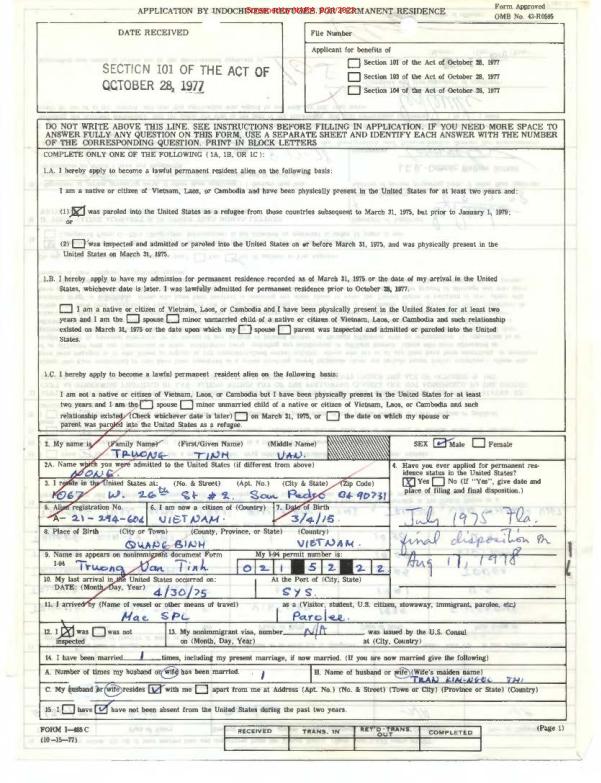 APPLICATION BY INDOCHINESE REFUGEE FOR PERMANENT RESIDENCE
Form Approved
OMB No. 43-R0595
DATE RECEIVED
SECTION 101 OF THE ACT OF
OCTOBER 28, 1977
File Number
Applicant for benefits of
Section 101 of the Act of October 28, 1977
Section 103 of the Act of October 28, 1977
Section 104 of the Act of October 28, 1977
DO NOT WRITE ABOVE THIS LINE. SEE INSTRUCTIONS BEFORE FILLING IN APPLICATION. IF YOU NEED MORE SPACE TO
ANSWER FULLY ANY QUESTION ON THIS FORM, USE A SEPARATE SHEET AND IDENTIFY EACH ANSWER WITH THE NUMBER
OF THE CORRESPONDING QUESTION. PRINT IN BLOCK LETTERS
COMPLETE ONLY ONE OF THE FOLLOWING (1A, 1B, OR 1C):
1.A. I hereby apply to become a lawful permanent resident alien on the following basis:
I am a native or citizen of Vietnam, Laos, or Cambodia and have been physically present in the United States for at least two years and:
(1) was paroled into the United States as a refugee from those countries subsequent to March 31, 1975, but prior to January 1, 1979;
or
(2) was inspected and admitted or paroled into the United States on or before March 31, 1975, and was physically present in the
United States on March 31, 1975.
1.B. I hereby apply to have my admission for permanent residence recorded as of March 31, 1975 or the date of my arrival in the United
States, whichever date is later. I was lawfully admitted for permanent residence prior to October 28, 1977.
I am a native or citizen of Vietnam, Laos, or Cambodia and I have been physically present in the United States for at least two
years and I am the spouse minor unmarried child of a native or citizen of Vietnam, Laos, or Cambodia and such relationship
existed on March 31, 1975 or the date upon which my spouse parent was inspected and admitted or paroled into the United
States.
1.C. I hereby apply to become a lawful permanent resident alien on the following basis:
I am not a native or citizen of Vietnam, Laos, or Cambodia but I have been physically present in the United States for at least
two years and I am the spouse minor unmarried child of a native or citizen of Vietnam, Laos, or Cambodia and such
relationship existed (Check whichever date is later) on March 31, 1975, or the date on which my spouse or
parent was paroled into the United States as a refugee.
2. My name is (Family Name) (First/Given Name) (Middle Name)
TRUONG TINH VAN.
SEX Male Female
2A. Name which you were admitted to the United States (if different from above)
NONG.
4. Have you ever applied for permanent residence status in the United States?
Yes No (If "Yes", give date and
place of filing and final disposition.)
July 1975 Fla.
final disposition on
Aug 17, 1978
3. I reside in the United States at: (No. & Street) (Apt. No.) (City & State) (Zip Code)
1067 W. 26th St # 2. San Pedro CA 90731
5. Alien registration No. 6. I am now a citizen of (Country) 7. Date of Birth
A-21-294-606 VIETNAM. 3/4/15.
8. Place of Birth (City or Town) (County, Province, or State) (Country)
QUANG BINH VIETNAM.
9. Name as appears on nonimmigrant document Form My I-94 permit number is:
I-94 Truong Van Tinh 021 52 22
10. My last arrival in the United States occurred on: At the Port of (City, State)
DATE: (Month, Day, Year) 4/30/75 SYS.
11. I arrived by (Name of vessel or other means of travel) as a (Visitor, student, U.S. citizen, stowaway, immigrant, parolee, etc.)
Mac SPL Parolee.
12. I was was not 13. My nonimmigrant visa, number N/A was issued by the U.S. Consul
inspected on (Month, Day, Year) at (City, Country)
14. I have been married 1 times, including my present marriage, if now married. (If you are now married give the following)
A. Number of times my husband or wife has been married. 1 B. Name of husband or wife (Wife's maiden name)
TRAN KIM-NGOC THI
C. My husband or wife resides with me apart from me at Address (Apt. No.) (No. & Street) (Town or City) (Province or State) (Country)
15. I have have not been absent from the United States during the past two years.
FORM I-485 C
(10-15-77)
RECEIVED TRANS. IN RET'D-TRANS. OUT COMPLETED
(Page 1)